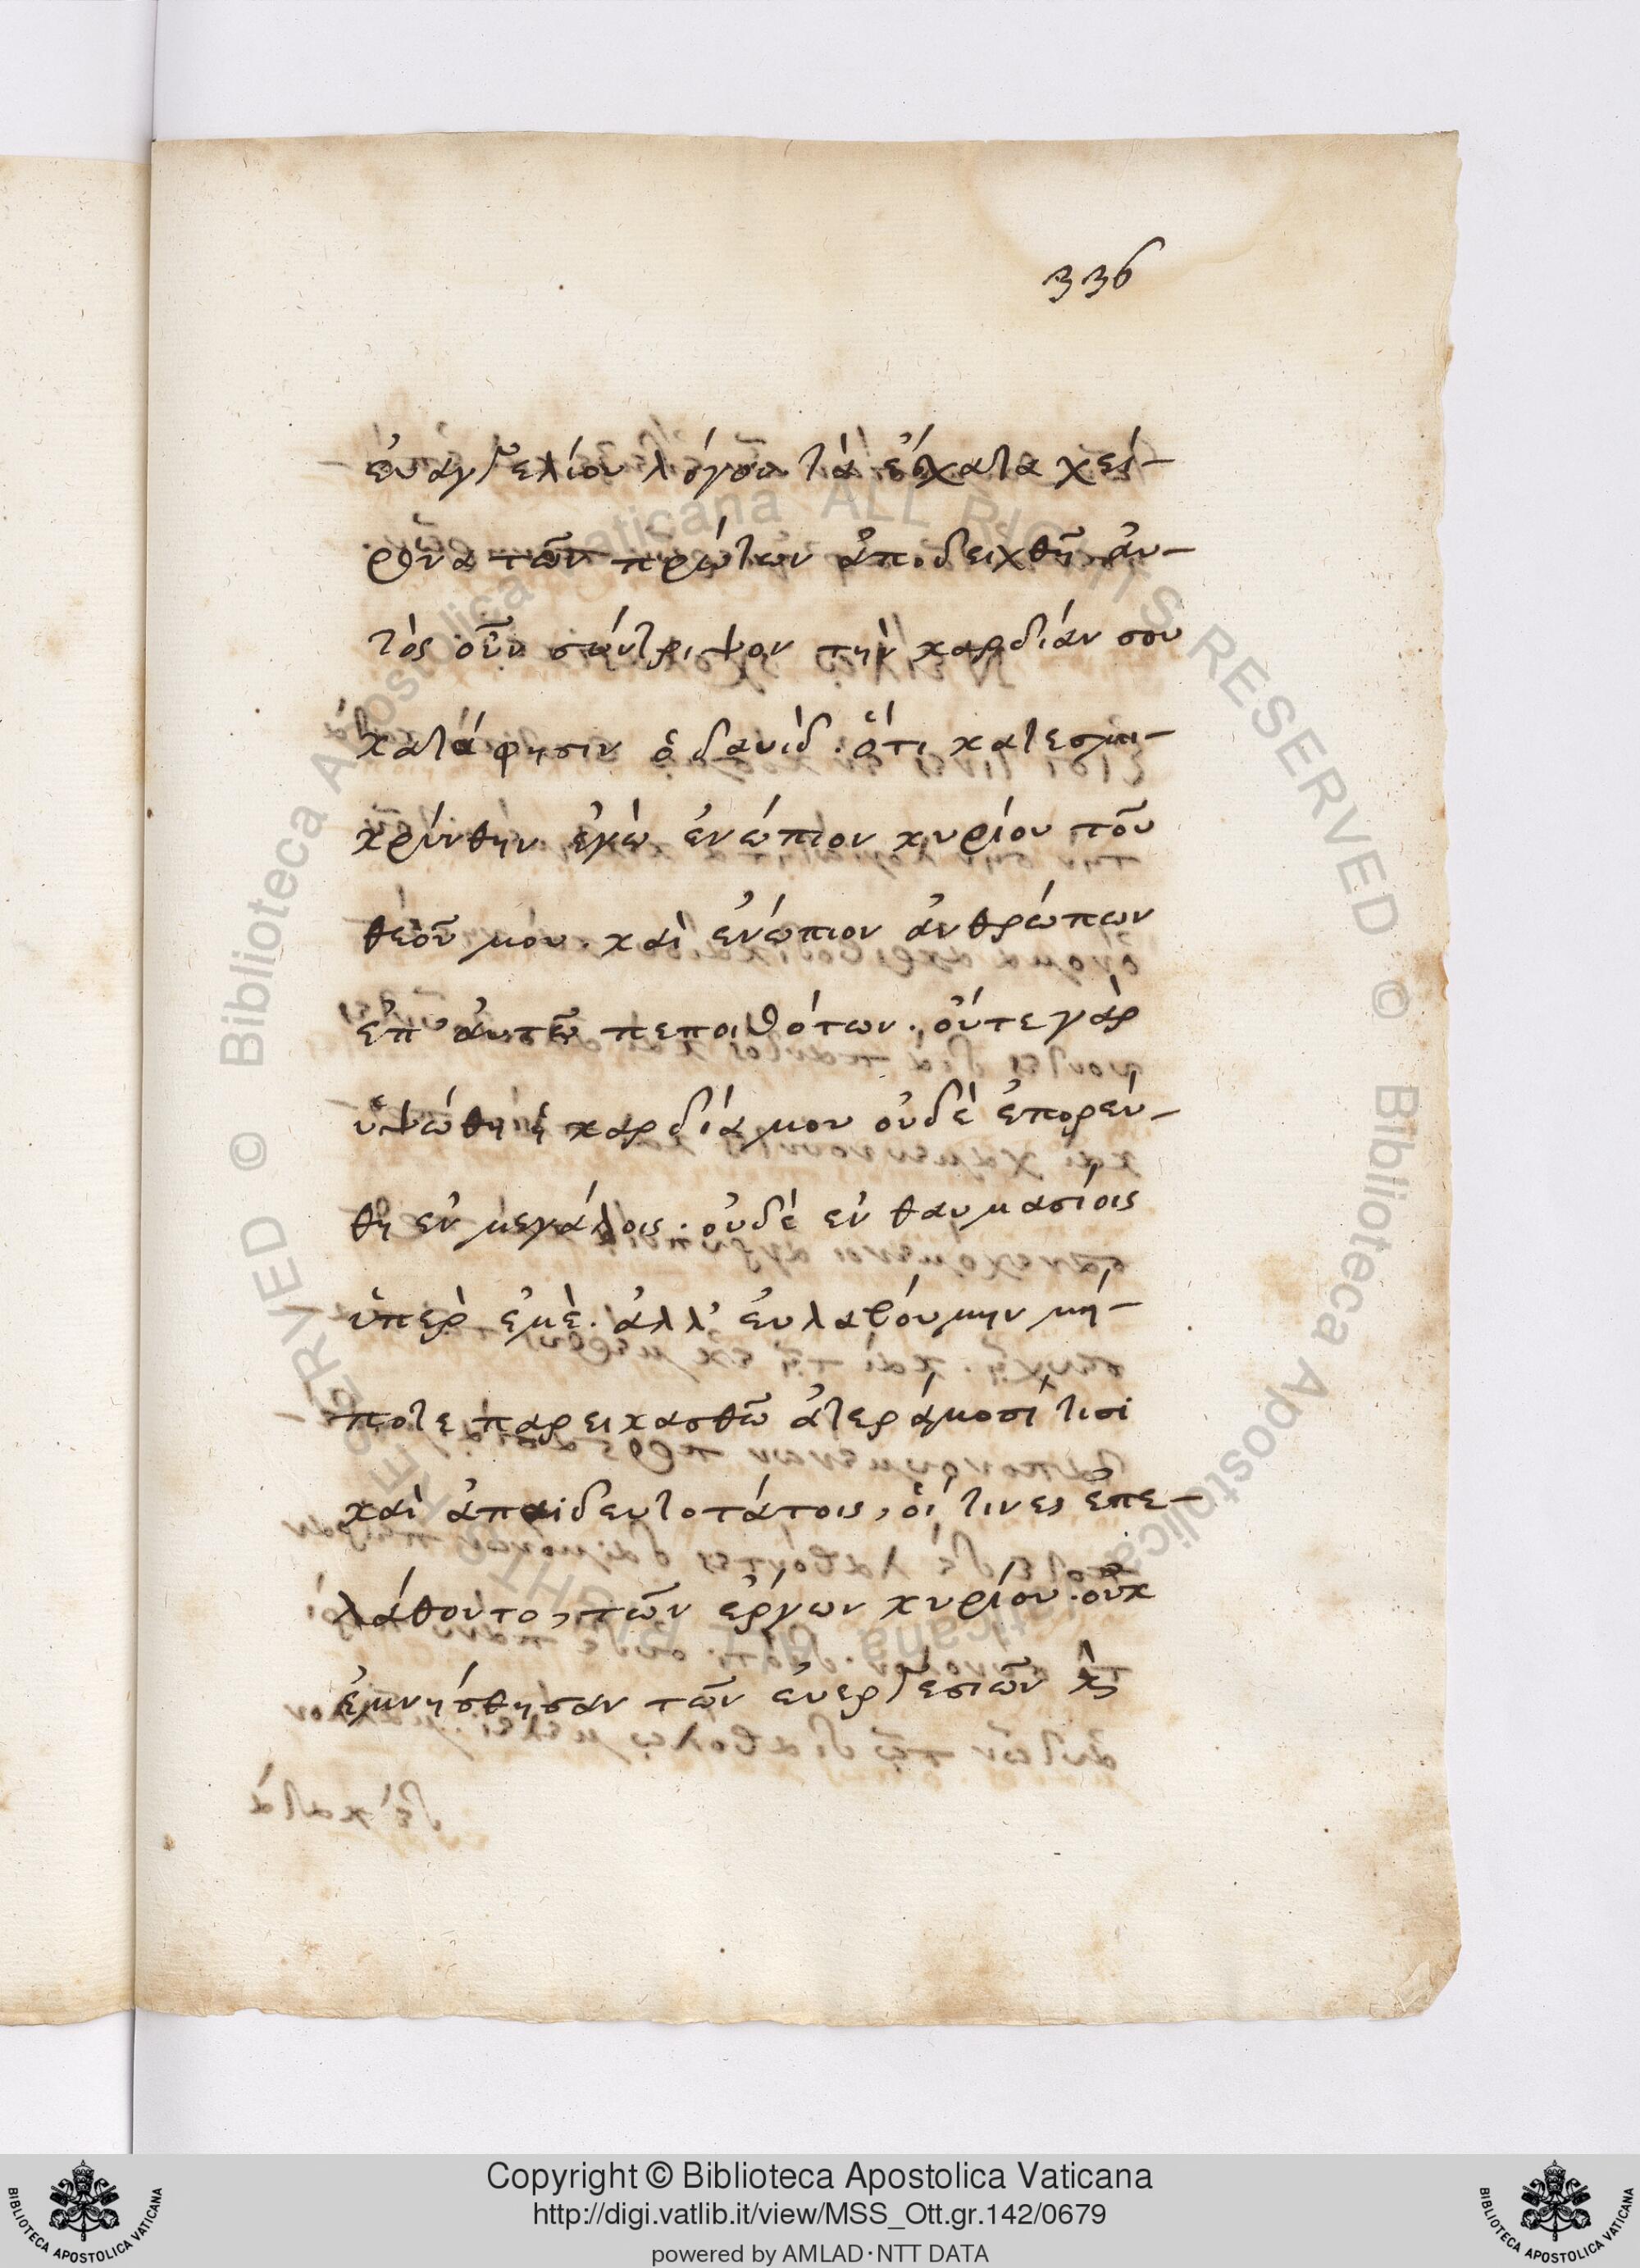 336
ἐυαγγελίου λόγον τὰ ἔσχατα χεί-
ρονα τῶν πρώτων ἀποδειχθῆ ἀυ-
τὸς οὖν σύντριψον τὴν καρδίαν σου
κατά φησιν ὁ δαυὶδ. ὅτι κατεσμι-
κρύνθην ἐγὼ ἐνώπιον κυρίου τοῦ
θεοῦ μου. καὶ ἐνώπιον ἀνθρώπων
ἐπ' ἀυτῶ πεποιθότων. οὔτε γὰρ
ὑψώθη ἡ καρδία μου οὐδὲ ἐπορεύ-
θη ἐν μεγάλοις. οὐδὲ ἐν θαυμασίοις
ὑπὲρ ἐμὲ. ἀλλ' ἐυλαβούμην μή-
ποτε παρεικασθῶ ἀτεράμοσί τισὶ
καὶ ἀπαιδευτοτάτοις, οἵ τινες ἐπε-
λάθοντο, τῶν ἔργων κυρίου. οὐκ
ἐμνήσθησαν τῶν ἐυεργεσιῶν κς
© Biblioteca Apostolica Vaticana ALL RIGHTS RESERVED
© Biblioteca Apostolica Vaticana ALL RIGHTS RESERVED
Copyright © Biblioteca Apostolica Vaticana
http://digi.vatlib.it/view/MSS_Ott.gr.142/0679
powered by AMLAD·NTT DATA
BIBLIOTECA APOSTOLICA VATICANA
BIBLIOTECA APOSTOLICA VATICANA